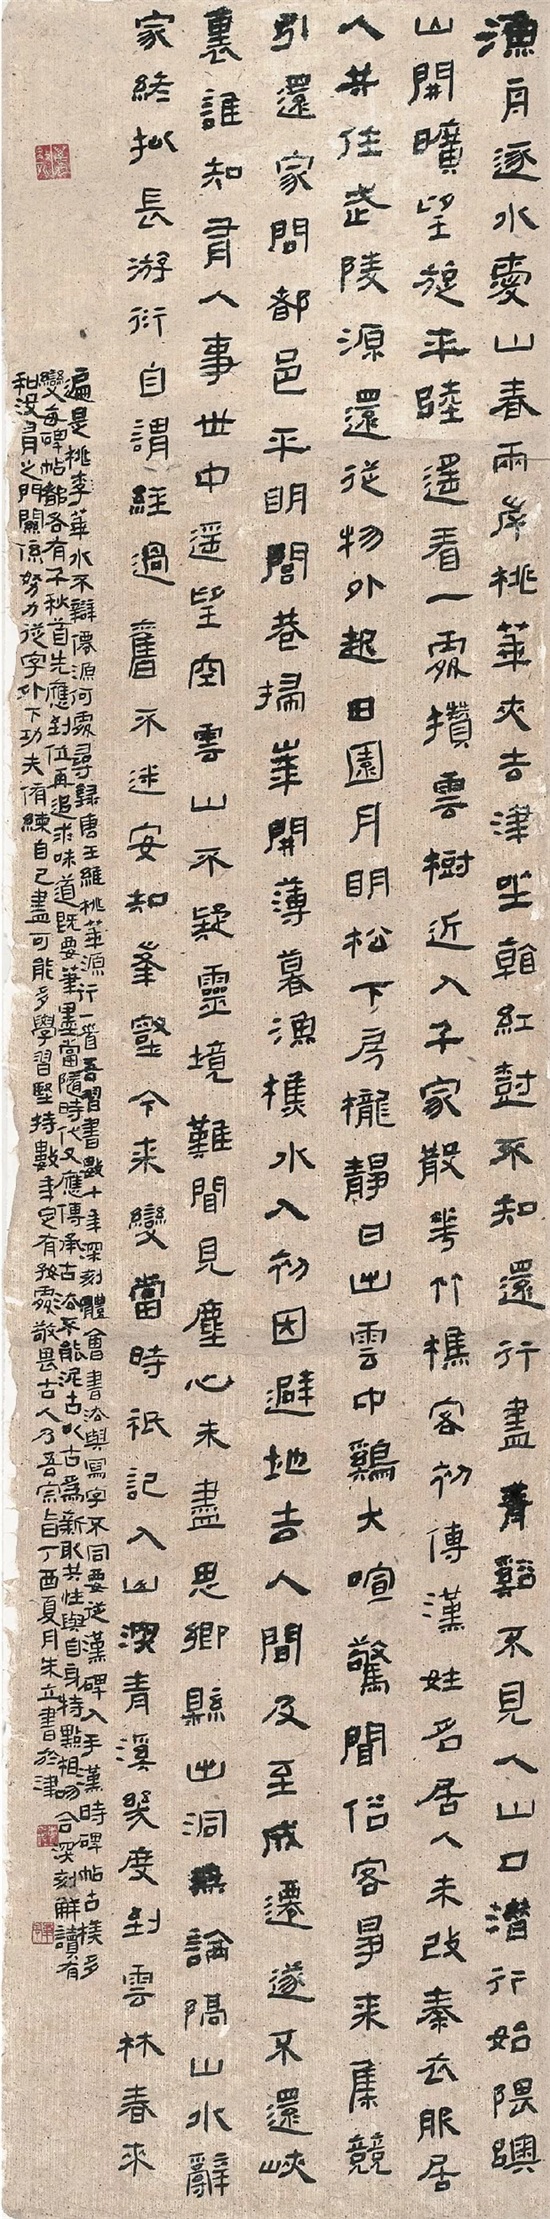 漁舟逐水愛山春兩岸桃華夾去津坐看紅樹不知還行盡青谿不見人山口潛行始隈隩
山開曠望旋平陸遥看一處攢雲樹近入千家散花竹樵客初傳漢姓名居人未改秦衣服居
人共住武陵源還從物外起田園月明松下房櫳靜日出雲中鷄犬喧驚聞俗客爭來集競
引還家問都邑平明閭巷掃華開薄暮漁樵水入初因避地去人間及至成遷遂不還峽
裏誰知有人事世中遥望空雲山不疑靈境難聞見塵心未盡思鄉縣出洞無論隔山水辭
家終拟長游衍自謂經過舊不迷安知峯壑今来變當時祇記入山深青溪幾度到雲林春來
遍是桃李華水不辯僊源何處尋録唐王維桃華源行一首吾習書數十年深刻體會書法與寫字不同要從漢碑入手漢時碑帖古樸多
變每碑帖都各有千秋首先應到位再追求味道既要筆墨當隨時代又應傳承古法不能泥古以古爲新取共性與自身特點相吻合深刻解讀有
和没有之門關係努力從字外下功夫脩練自己盡可能多學習堅持數年定有
敬畏古人乃吾宗旨丁酉夏月朱立書於津